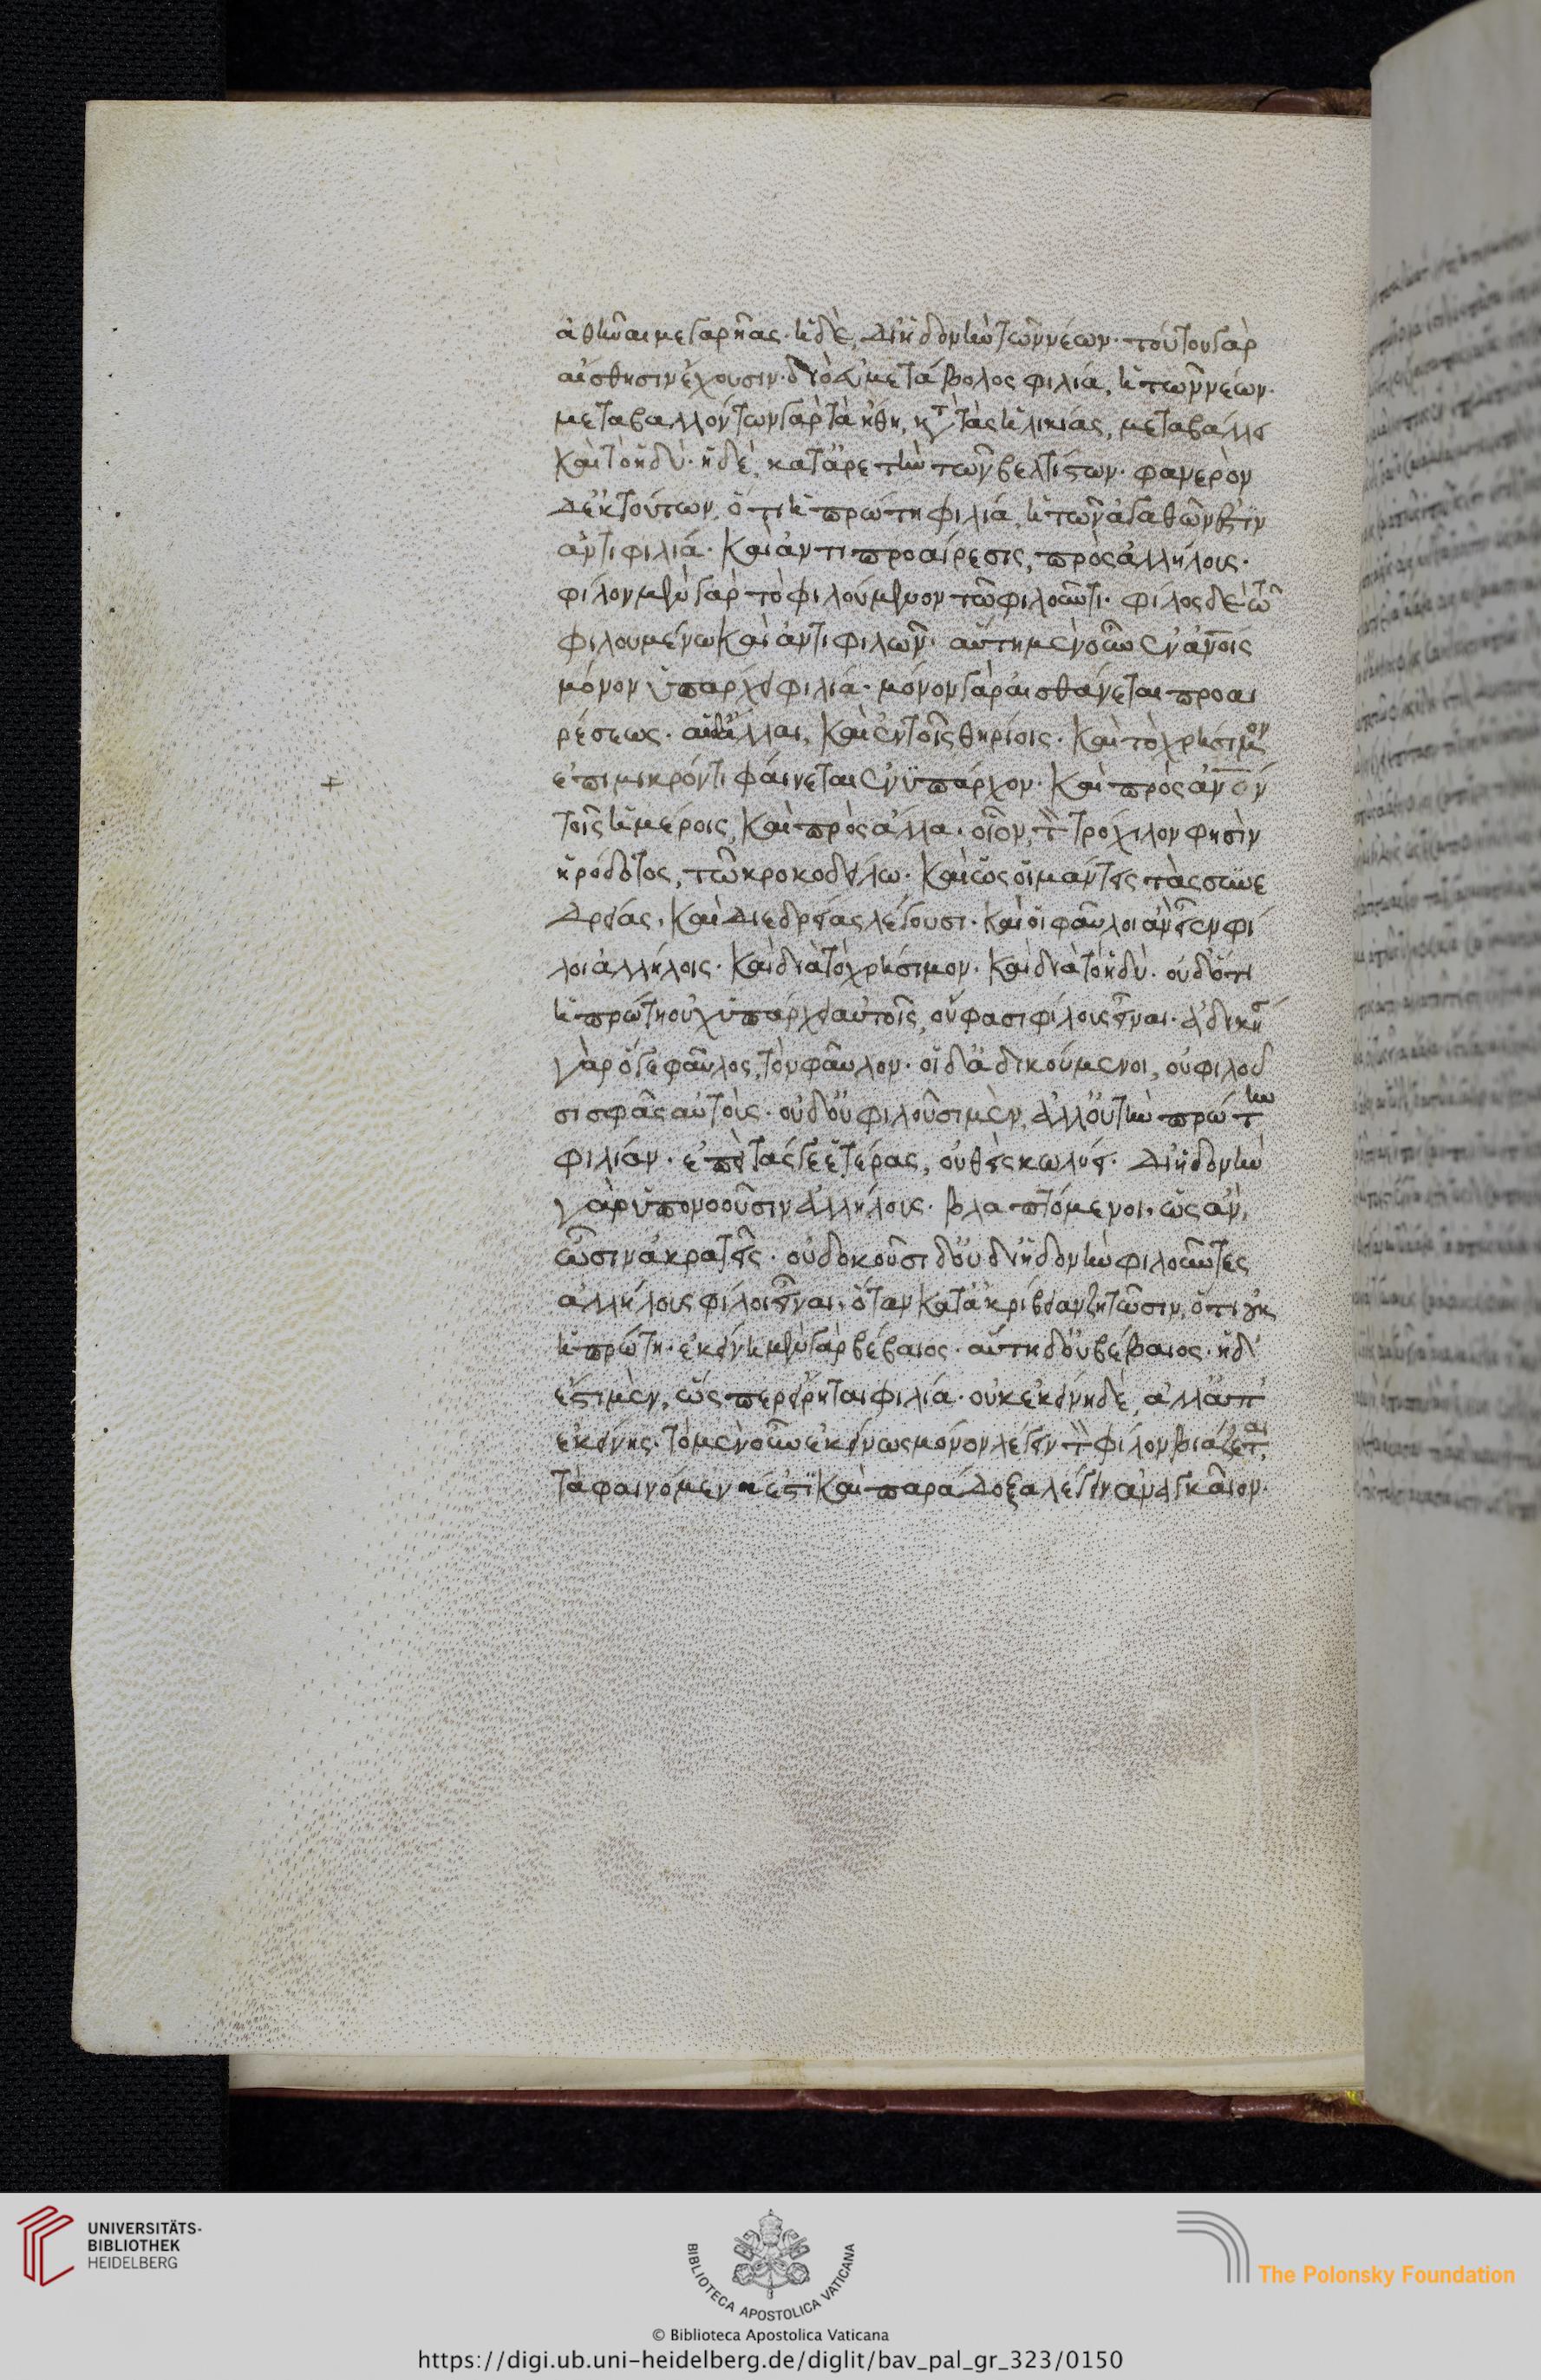 ἀθηναῖ με γαρκῆας· ἡ δὲ, δι' ἡδονὴν τῶν νέων· τούτου γὰρ
αἴσθησιν ἔχουσιν· διὸ εὐμετάβολος φιλία, ἡ τῶν νέων·
μεταβαλλόντων γὰρ τὰ ἤθη, κατὰ τὰς ἡλικίας, μεταβάλλει
καὶ τὸ ἡδύ· ἡ δὲ, κατ' ἀρετὴν τῶν βελτίστων· φανερὸν
δ' ἐκ τούτων, ὅτι ἡ πρώτη φιλία, ἡ τῶν ἀγαθῶν ἐστὶν
ἀντιφιλία· καὶ ἀντιπροαίρεσις, πρὸς ἀλλήλους·
φίλον μὲν γὰρ τὸ φιλούμενον τῶ φιλοῦντι· φίλος δὲ τῶ
φιλουμένω καὶ ἀντιφιλῶν· αὕτη μὲν οὖν ἐν ἀνοις
μόνον ὑπάρχει φιλία· μόνον γὰρ αἰσθάνεται προαι
ρέσεως· αἱ δ' ἄλλαι, καὶ ἐν τοῖς θηρίοις· καὶ τὸ χρήσιμον
ἐπὶ μικρόν τι φαίνεται ἐνυπάρχον· καὶ πρὸς ἀνον
τοῖς ἡμέροις, καὶ πρὸς ἄλλα· οἷον, τὸν τροχίλον φησὶν
ἡρόδοτος, τῶ κροκοδείλω· καὶ ὡς οἱ μάντεις τὰς συνε
δρείας, καὶ διεδρείας λέγουσι· καὶ οἱ φαῦλοι ἂν εἶεν φί
λοι ἀλλήλοις· καὶ διὰ τὸ χρήσιμον· καὶ διὰ τὸ ἡδύ· οὐδ' ὅτι
ἡ πρώτη οὐχ ὑπάρχει αὐτοῖς, οὔ φασι φίλους εἶναι· ἀδικήσει
γὰρ ὅ γε φαῦλος, τὸν φαῦλον· οἱ δ' ἀδικούμενοι, οὐ φιλοῦ
σι σφᾶς αὐτούς· οὐδ' οὐ φιλοῦσι μὲν, ἀλλ' οὐ τὴν πρώτην
φιλίαν· ἐπεὶ τάς γε ἑτέρας, οὐθὲν κωλύει· δι' ἡδονὴν
γὰρ ὑπονοοῦσιν ἀλλήλους· βλαπτόμενοι, ὡς ἂν,
ὦσιν ἀκρατεῖς· οὐ δοκοῦσι δ' οὐδ' οἱ δι' ἡδονὴν φιλοῦντες
ἀλλήλους φίλοι εἶναι, ὅταν κατ' ἀκρίβειαν ζητῶσιν, ὅτι οὐκ
ἡ πρώτη· ἐκείνη μὲν γὰρ βέβαιος· αὕτη δ' οὐ βέβαιος· ἡ δ'
ἐστὶ μὲν, ὥσπερ εἴρηται φιλία· οὐκ ἐκείνη δὲ, ἀλλ' ἀπ'
ἐκείνης· τὸ μὲν οὖν ἐκείνως μόνον λέγειν τὸν φίλον βιάζεται
τὰ φαινόμενα ἐστὶ καὶ παράδοξα λέγειν ἀναγκαῖον·
UNIVERSITÄTS-
BIBLIOTHEK
HEIDELBERG
BIBLIOTECA APOSTOLICA VATICANA
The Polonsky Foundation
© Biblioteca Apostolica Vaticana
https://digi.ub.uni-heidelberg.de/diglit/bav_pal_gr_323/0150